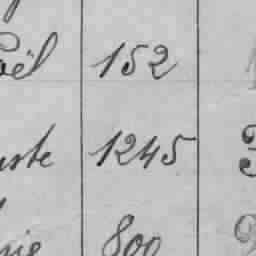 oël 152
uste 1245
nie 800